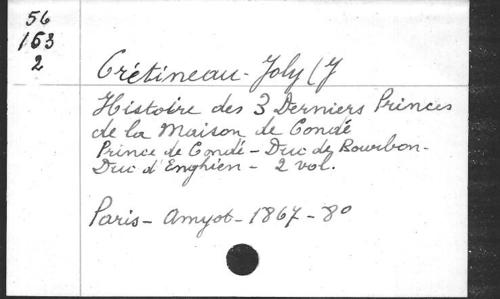 56
163
2
Crétineau-Joly (J
Histoire des 3 Derniers Princes
de la Maison de Condé
Prince de Condé - Duc de Bourbon -
Duc d'Enghien - 2 vol.
Paris - Amyot - 1867 - 8°